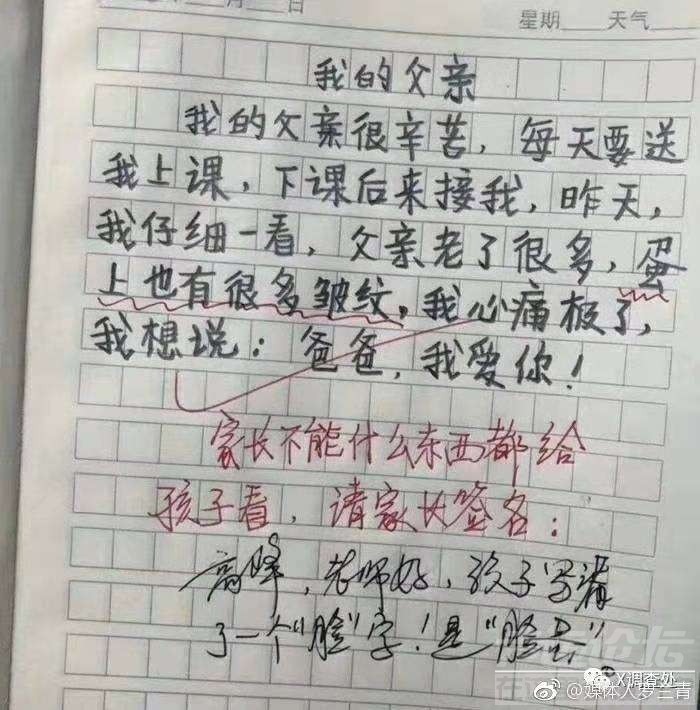 月 日 星期 天气
我的父亲
我的父亲很辛苦，每天要送
我上课，下课后来接我，昨天，
我仔细一看，父亲老了很多，蛋
上也有很多皱纹，我心痛极了，
我想说：爸爸，我爱你！
家长不能什么东西都给
孩子看，请家长签名：
高峰，老师好，孩子写满
了一个"脸"字！是"脸蛋"
X调查处
@媒体人罗兰青